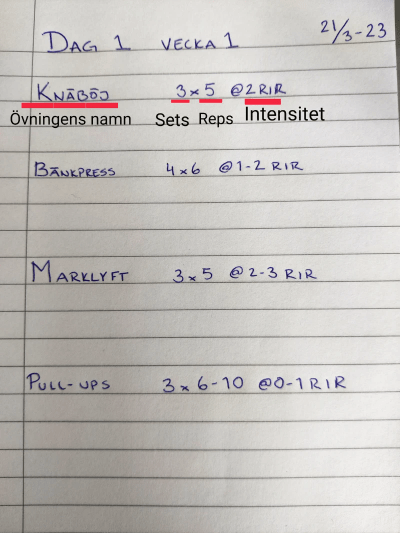 DAG 1 VECKA 1 21/3-23
KNÄBÖJ 3×5 @2RIR
Övningens namn Sets Reps Intensitet
BÄNKPRESS 4×6 @1-2 RIR
MARKLYFT 3×5 @2-3 RIR
PULL-UPS 3×6-10 @0-1 RIR